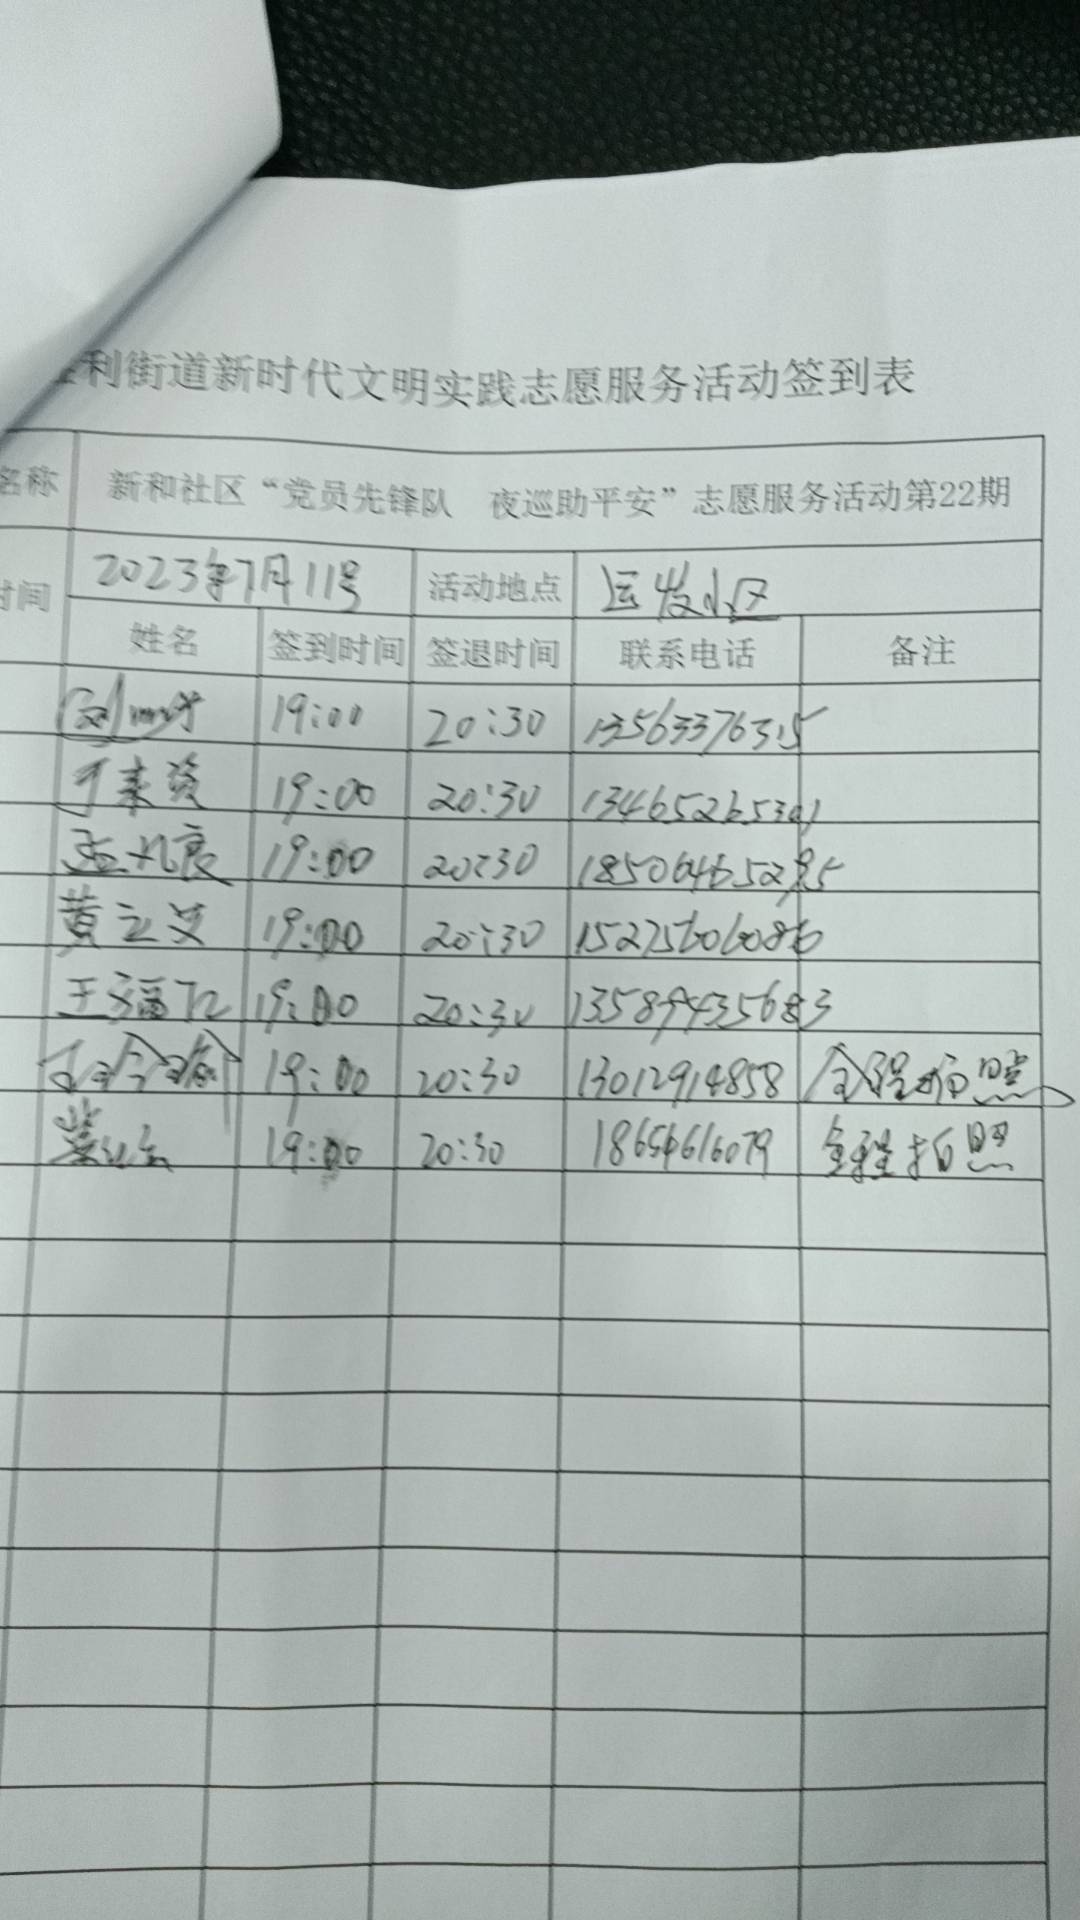 利街道新时代文明实践志愿服务活动签到表
名称 新和社区“党员先锋队 夜巡助平安”志愿服务活动第22期
时间 2023年7月11号 活动地点 运发小区
姓名 签到时间 签退时间 联系电话 备注
19:00 20:30 13563376315
于来资 19:00 20:30
19:00 20:30
黄立艾 19:00 20:30 15275606086
王福 19:00 20:30 13589435683
19:00 20:30 13012914858 全程拍照
19:00 20:30 18656616079 全程拍照